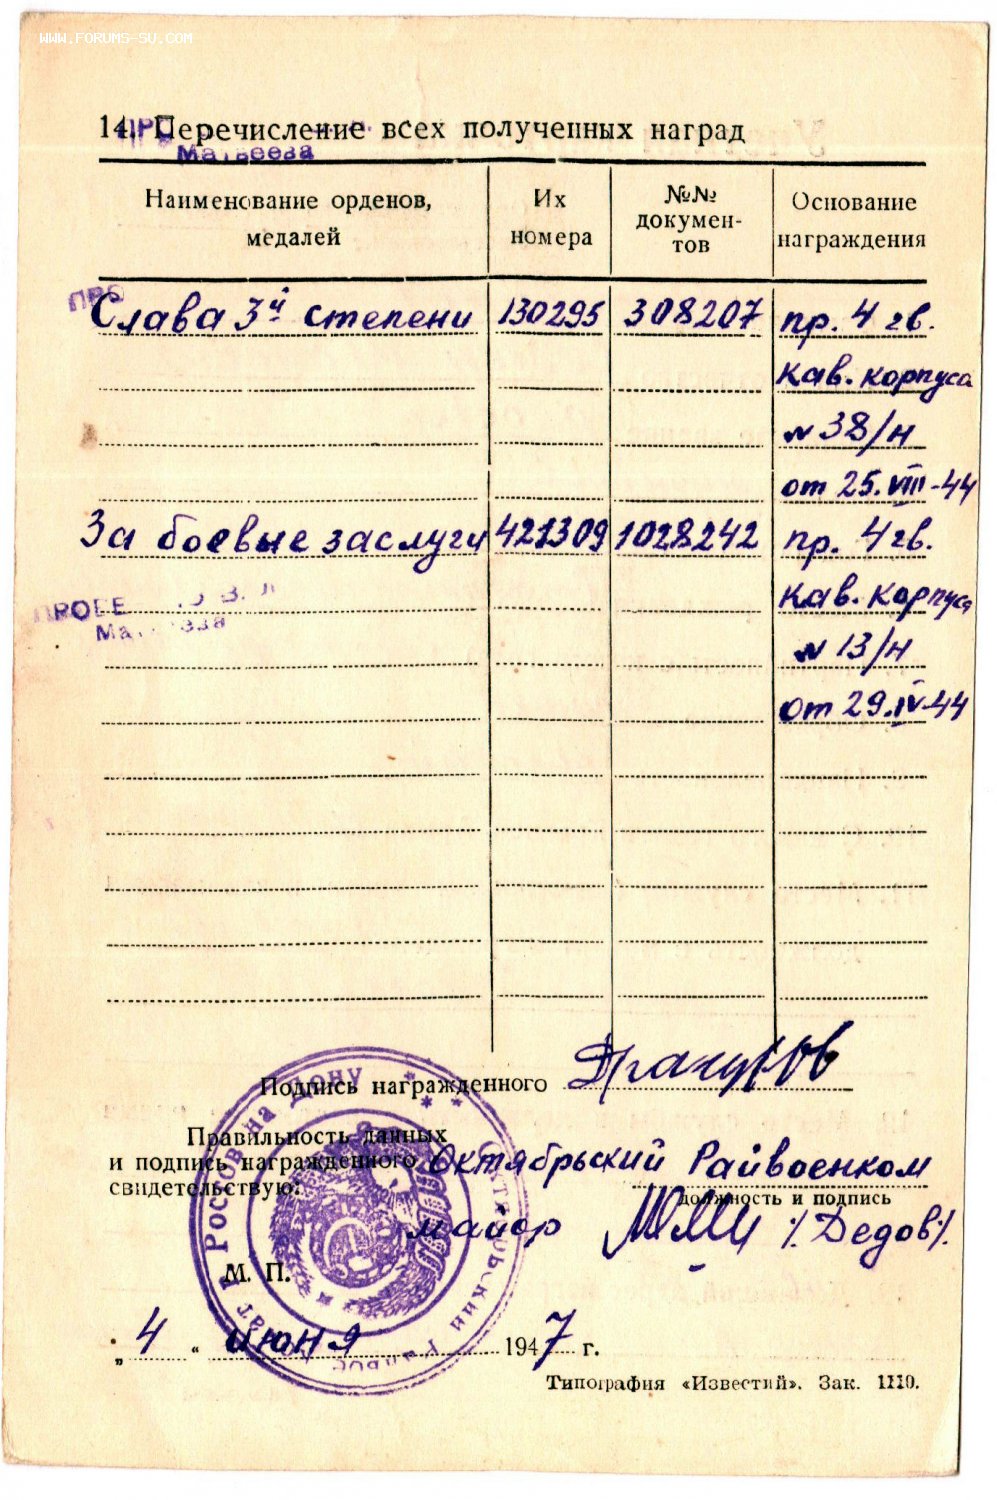 WWW.FORUMS-SU.COM
14. Перечисление всех полученных наград
Матвеева
Наименование орденов, медалей
Их номера
№№ докумен-тов
Основание награждения
ПРО
Слава 3й степени 130295 308207 пр. 4 гв.
Кав. корпуса
№ 38/н
от 25.VIII-44
За боевые заслуги 421309 1028242 пр. 4 гв.
Кав. корпуса
№ 13/н
от 29.IV-44
ПРОВЕ
Подпись награжденного
Правильность данных
и подпись награжденного Октябрьский Райвоенком
свидетельствую:
должность и подпись
майор /Дедов/.
М. П.
Ростов на Дону
Октябрьский
„ 4 “ июня 1947 г.
Типография «Известий». Зак. 1110.